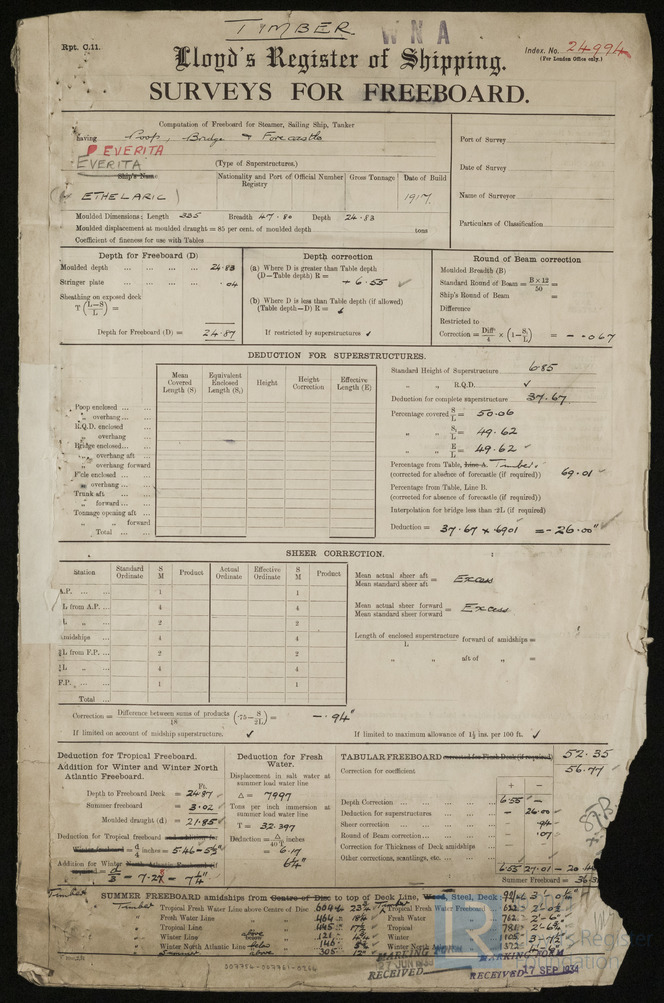 TIMBER.
W N A
Rpt. C.11.
Index. No. 24994
(For London Office only.)
Lloyd's Register of Shipping.
SURVEYS FOR FREEBOARD.
Computation of Freeboard for Steamer, Sailing Ship, Tanker
having Poop, Bridge + Forecastle
EVERITA
EVERITA
(Type of Superstructures.)
Port of Survey
Date of Survey
Name of Surveyor
Particulars of Classification
Ship's Name
Nationality and Port of Registry
Official Number
Gross Tonnage
Date of Build
ETHELARIC
1917.
Moulded Dimensions: Length 335 Breadth 47.80 Depth 24.83
Moulded displacement at moulded draught = 85 per cent. of moulded depth tons
Coefficient of fineness for use with Tables
Depth for Freeboard (D)
Moulded depth ... 24.83
Stringer plate ... .04
Sheathing on exposed deck
T (L-S/L) =
Depth for Freeboard (D) = 24.87
Depth correction
(a) Where D is greater than Table depth
(D—Table depth) R = + 6.55
(b) Where D is less than Table depth (if allowed)
(Table depth—D) R =
If restricted by superstructures
Round of Beam correction
Moulded Breadth (B)
Standard Round of Beam = B × 12 / 50 =
Ship's Round of Beam =
Difference
Restricted to
Correction = Diff./4 × (1 - S₁/L) = - .067
DEDUCTION FOR SUPERSTRUCTURES.
Mean Covered Length (S)
Equivalent Enclosed Length (S₁)
Height
Height Correction
Effective Length (E)
Poop enclosed
" overhang
R.Q.D. enclosed
" overhang
Bridge enclosed
" overhang aft
" overhang forward
F'cle enclosed
" overhang
Trunk aft
" forward
Tonnage opening aft
" " forward
Total
Standard Height of Superstructure 6.85
" " R.Q.D.
Deduction for complete superstructure 37.67
Percentage covered S/L = 50.06
" " S₁/L = 49.62
" " E/L = 49.62
Percentage from Table, Line A. Timber.
(corrected for absence of forecastle (if required)) 69.01
Percentage from Table, Line B.
(corrected for absence of forecastle (if required))
Interpolation for bridge less than .2L (if required)
Deduction = 37.67 × .6901 = - 26.00"
SHEER CORRECTION.
Station
Standard Ordinate
S M
Product
Actual Ordinate
Effective Ordinate
S M
Product
A.P. ... 1 1
L from A.P. ... 4 4
L " ... 2 2
Amidships ... 4 4
L from F.P. ... 2 2
L " ... 4 4
F.P. ... 1 1
Total
Mean actual sheer aft / Mean standard sheer aft = Excess
Mean actual sheer forward / Mean standard sheer forward = Excess
Length of enclosed superstructure / L forward of amidships =
" " aft of " =
Correction = Difference between sums of products / 18 (.75 - S/2L) = - .94"
If limited on account of midship superstructure.
If limited to maximum allowance of 1½ ins. per 100 ft.
Deduction for Tropical Freeboard.
Addition for Winter and Winter North Atlantic Freeboard.
Ft.
Depth to Freeboard Deck = 24.87
Summer freeboard = 3.02
Moulded draught (d) = 21.85
Deduction for Tropical freeboard
d/4 inches = 5.46 = 5½"
Addition for Winter
Deduction for Fresh Water.
Displacement in salt water at summer load water line
Δ = 7997
Tons per inch immersion at summer load water line
T = 32.397
Deduction = Δ/40T
= 6.17
6¼"
TABULAR FREEBOARD corrected for Flush Deck (if required) 52.35
Correction for coefficient 56.77
+ −
Depth Correction 6.55 −
Deduction for superstructures − 26.00
Sheer correction − .94
Round of Beam correction − .07
Correction for Thickness of Deck amidships
Other corrections, scantlings, etc.
6.55 27.01
Summer Freeboard =
Timber
SUMMER FREEBOARD amidships from Centre of Disc to top of Deck Line, Wood, Steel, Deck:
Timber Tropical Fresh Water Line above Centre of Disc
Tropical Fresh Water Freeboard
Fresh Water Line
Fresh Water
Tropical Line
Tropical
Winter Line
Winter
Winter North Atlantic Line
Winter North
MARKING FORM
RECEIVED
MARKING FORM
RECEIVED 17 SEP 1934
Register
Foundation